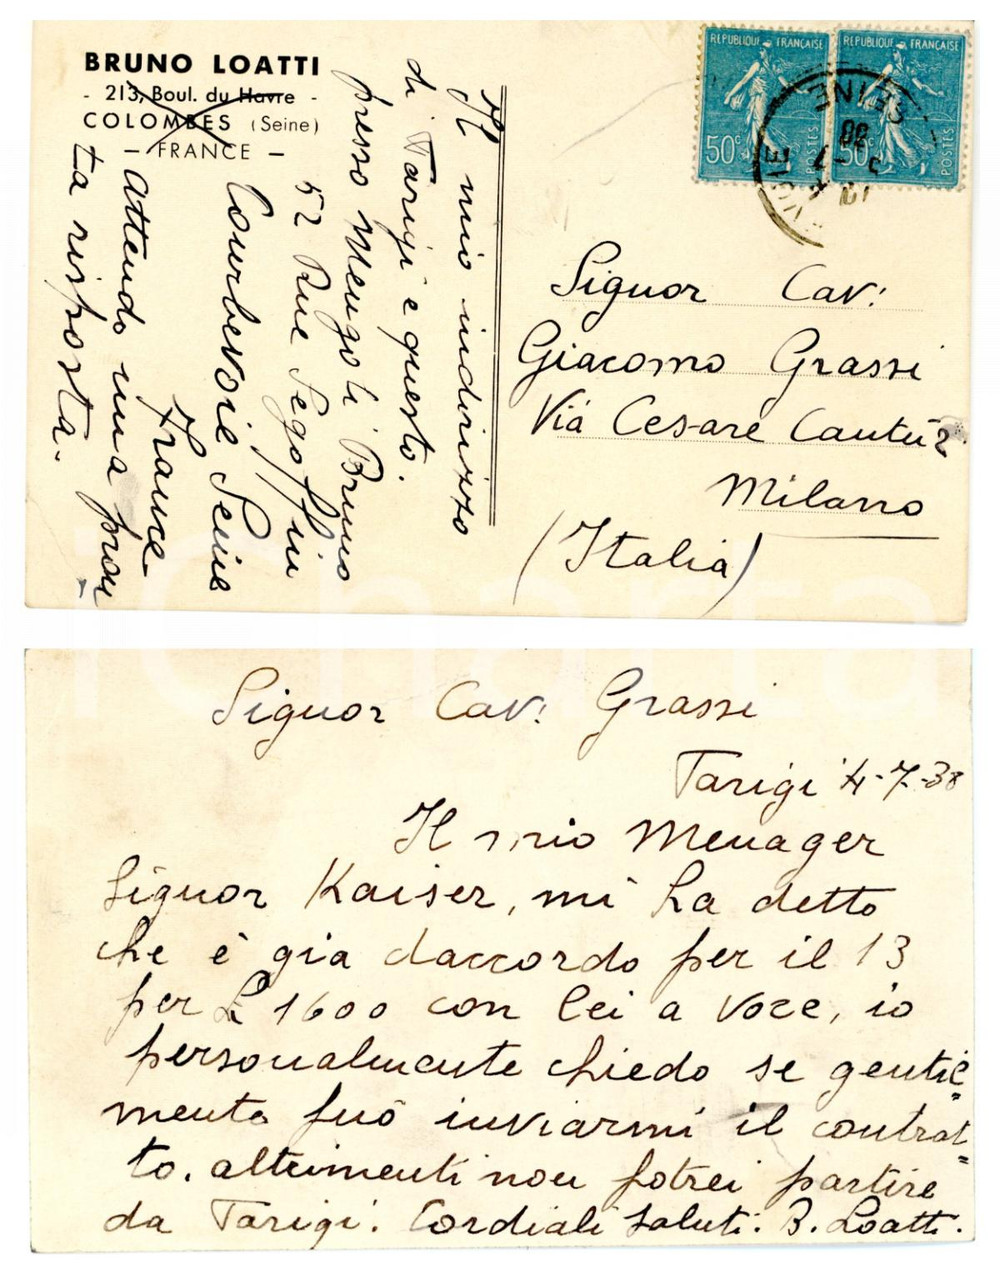 BRUNO LOATTI
- 213, Boul. du Havre -
COLOMBES (Seine)
- FRANCE -
REPUBLIQUE FRANÇAISE
50c
POSTES
REPUBLIQUE FRANÇAISE
50c
POSTES
SEINE
Il mio indirizzo
di Parigi e questo.
presso Mengoli Bruno
52 Rue Segoffin
Courbevoie Seine
France
attendo una pron
ta risposta.
Signor Cav:
Giacomo Grassi
Via Cesare Cantù 2.
Milano
(Italia)
Signor Cav: Grassi
Parigi 4-7-38
Il mio Menager
Signor Kaiser, mi ha detto
che è gia daccordo per il 13
per £ 1600 con lei a voce, io
personalmente chiedo se gentil=
mente può inviarmi il contrat=
to. altrimenti non potrei partire
da Parigi. Cordiali saluti. B. Loatti.
iCharta